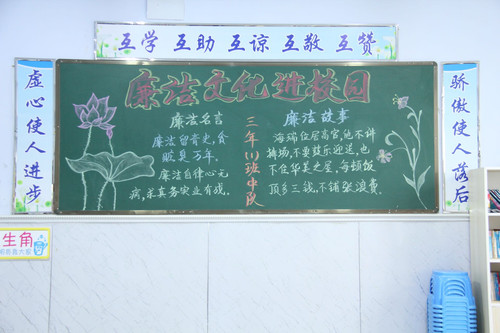 互学 互助 互谅 互敬 互赞
虚心使人进步
廉洁文化进校园
廉洁名言
廉洁留青史,贪
贼臭万年。
廉洁自律心无
病,求真务实业有成。
三年(1)班中队
廉洁故事
海瑞位居高官,他不讲
排场,不要鼓乐迎送,也
不住华美之屋,每顿饭
顶多三钱,不铺张浪费。
骄傲使人落后
生角